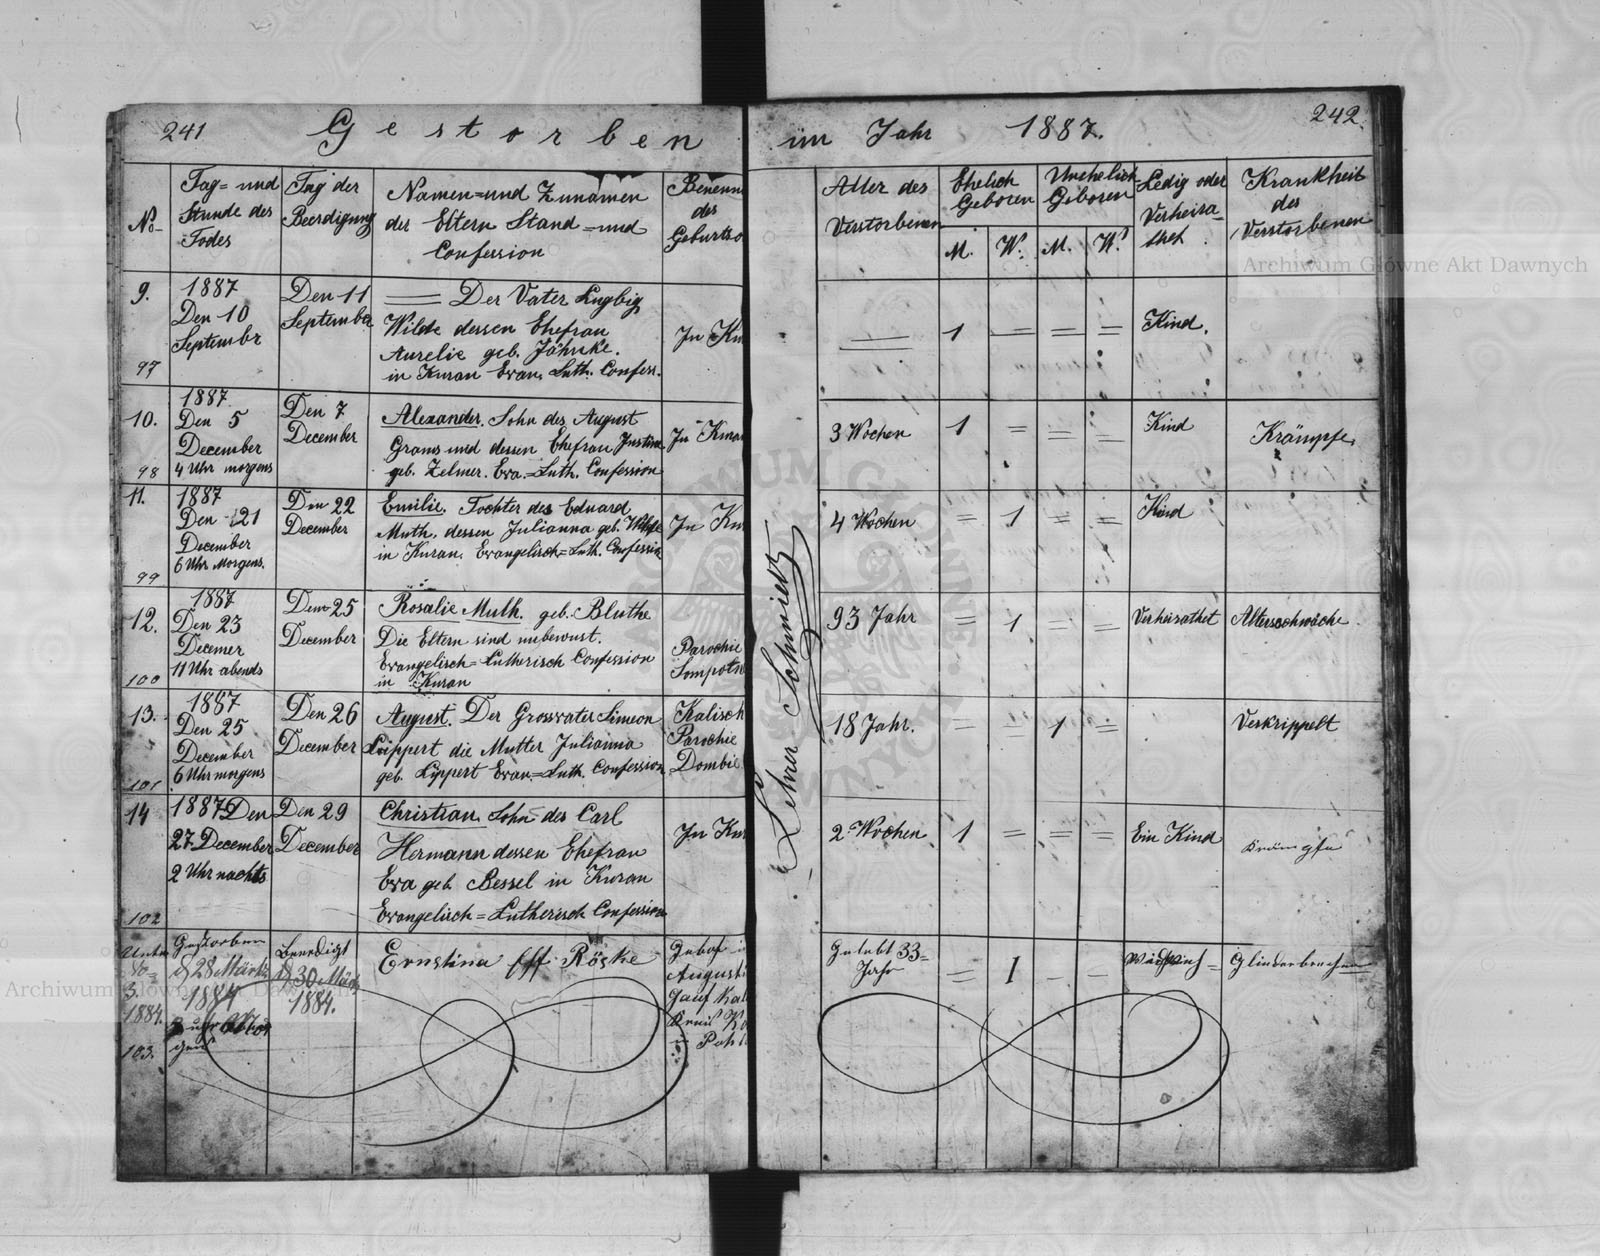 241
Gestorben
No
Tag= und
Stunde des
Todes
Tag der
Beerdigung
Namen=und Zunamen
der Eltern Stand=und
Confession
Benenn
des
Geburtso
9.
97
1887
Den 10
September
Den 11
September
Der Vater
Wilde dessen Ehefrau
Aurelie geb. Jähnke.
in Kuran Evan. Luth. Confess.
In Ku
10.
98
1887
Den 5
December
4 Uhr morgens
Den 7
December
Alexander. Sohn des August
Grams und dessen Ehefrau Justine
geb. Zelmer. Eva.=Luth. Confession
In Kura
11.
99
1887
Den 21
December
6 Uhr Morgens.
Den 22
December
Emilie. Tochter des Eduard
Muth, dessen Julianna geb.
in Kuran. Evangelisch=Luth. Confession
In Kur
12.
100
1887
Den 23
Decemer
11 Uhr abends
Den 25
December
Rosalie Muth. geb. Bluthe
Die Eltern sind unbewust.
Evangelisch=Lutherisch Confession
in Kuran
Parochie
Sompoln
13.
101
1887
Den 25
December
6 Uhr morgens
Den 26
December
August. Der Grosvater Simeon
Lippert die Mutter Julianna
geb. Lippert Evan=Luth. Confession
Kalisch
Parochie
Dombie
14
102
1887 Den
27 December
2 Uhr nachts
Den 29
December
Christian Sohn des Carl
Hermann dessen Ehefrau
Eva geb. Bessel in Kuran
Evangelisch=Lutherisch Confession
In Kur
Unter
No=
3.
1884.
103.
Gestorben
d 28 März
1884
Beerdigt
d 30 März
1884.
Ernstina Eff. Röske
Gebor
August
242
im Jahr 1887.
Alter des
Verstorbenen
Ehelich
Geboren
M. W.
Unehelich
Geboren
M. W.
Ledig oder
Verheira=
thet
Krankheit
des
Verstorbenen
1 = = =
Kind.
3 Wochen
1 = = =
Kind
Krämpfe
4 Wochen
= 1 = =
Kind
93 Jahr
= 1 = =
Verheirathet
Altersschwäche
18 Jahr.
= = 1 =
Verkrippelt
2 Wochen
1 = = =
Ein Kind
Krämpfe
Gelebt 33=
Jahr
= 1 - -
Lehrer Schmidt
Archiwum Główne Akt Dawnych
Archiwum Główne Akt Dawnych
ARCHIWUM GŁÓWNE AKT DAWNYCH